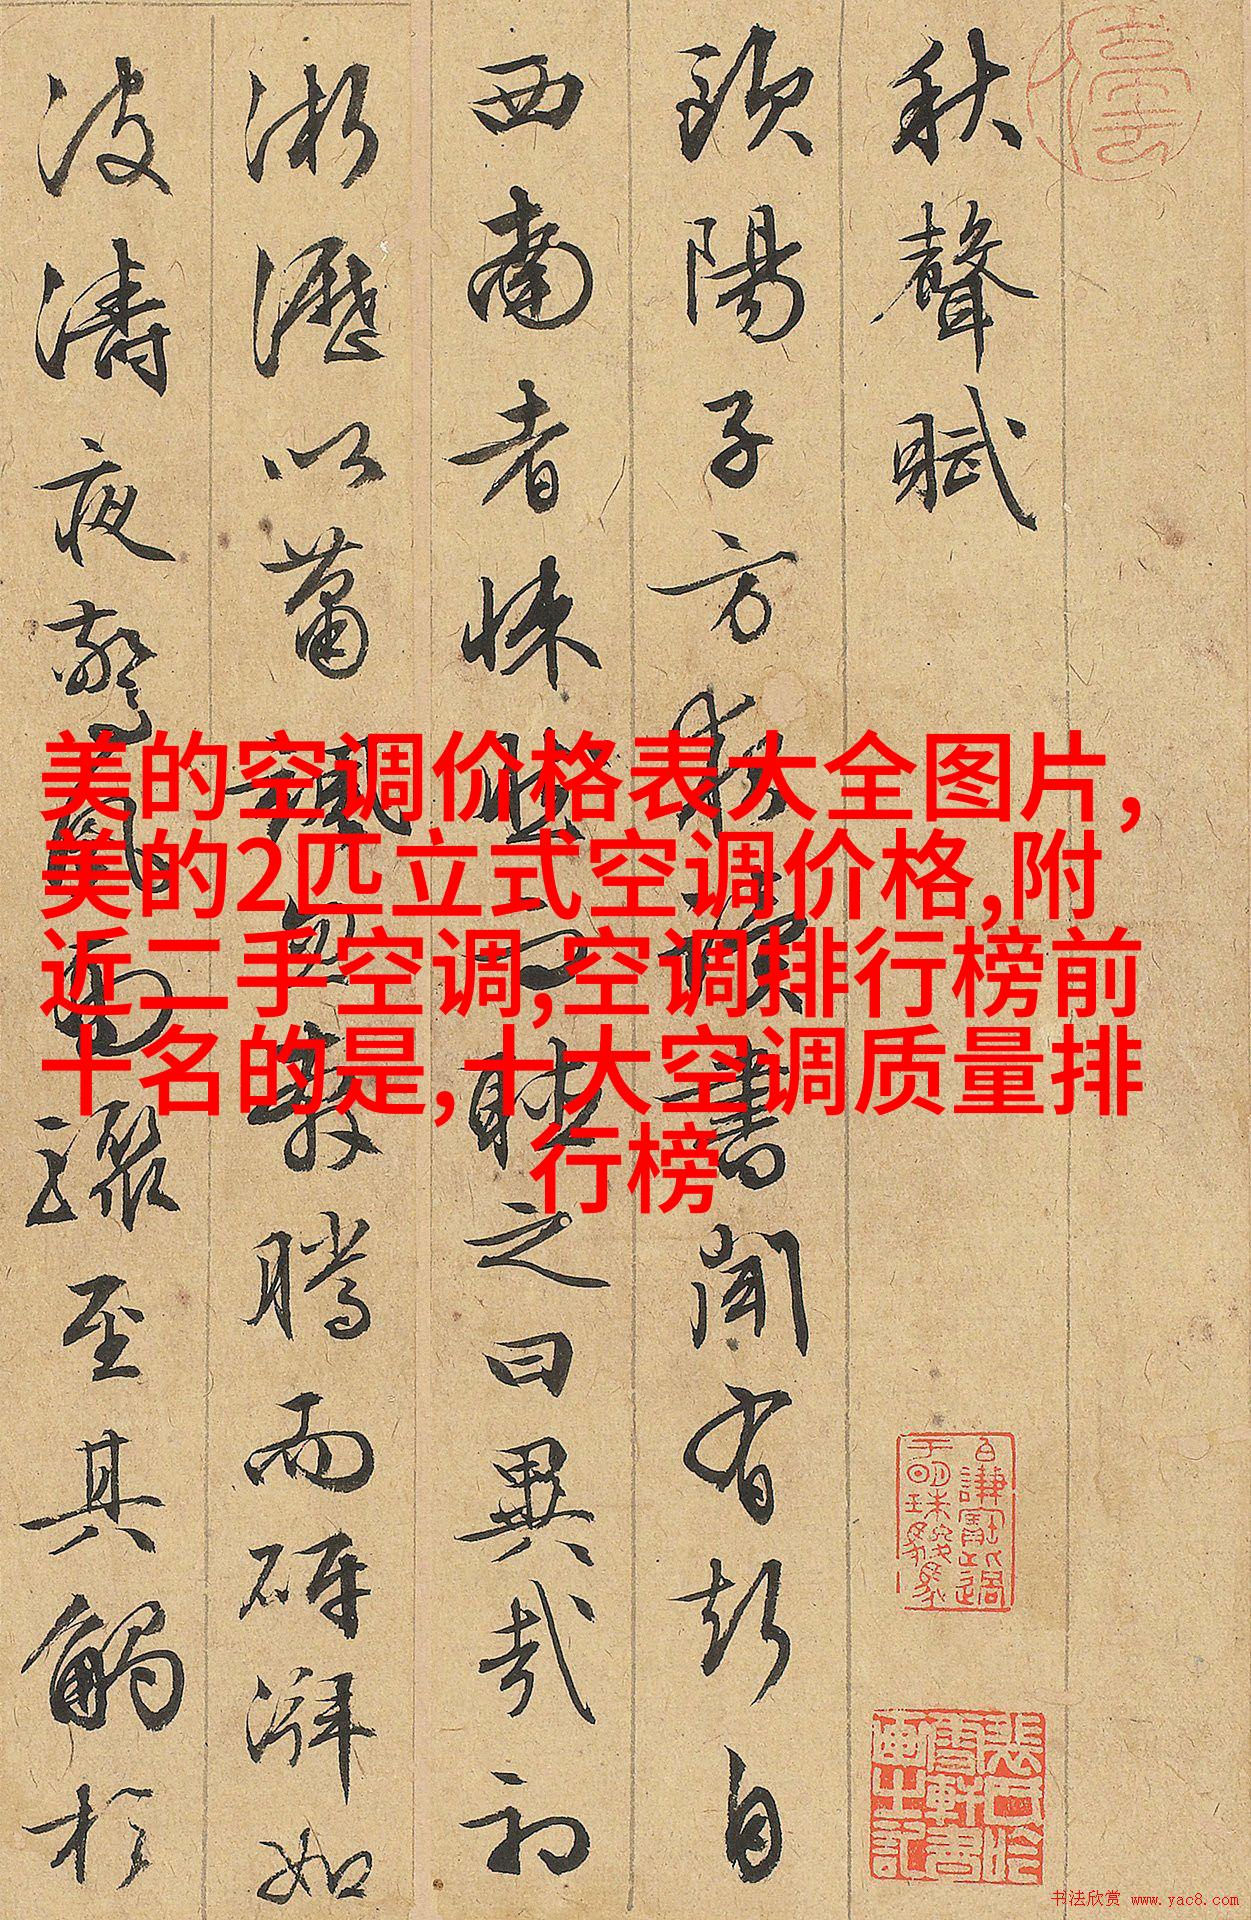 秋聲賦
歐陽子方夜讀書聞有聲自
西南者悚然而聽之曰異哉初
淅瀝以蕭颯忽奔騰而砰湃如
波濤夜驚風雨驟至其觸於
美的空调价格表大全图片,
美的2匹立式空调价格,附
近二手空调,空调排行榜前
十名的是,十大空调质量排
行榜
书法欣赏 www.yac8.com